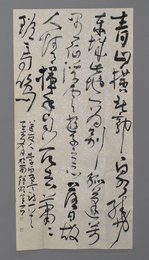 青山橫北郭白水繞
東城此地一為別孤蓬萬
里征浮雲遊子意落日故
人情揮手自茲去蕭蕭
班馬鳴